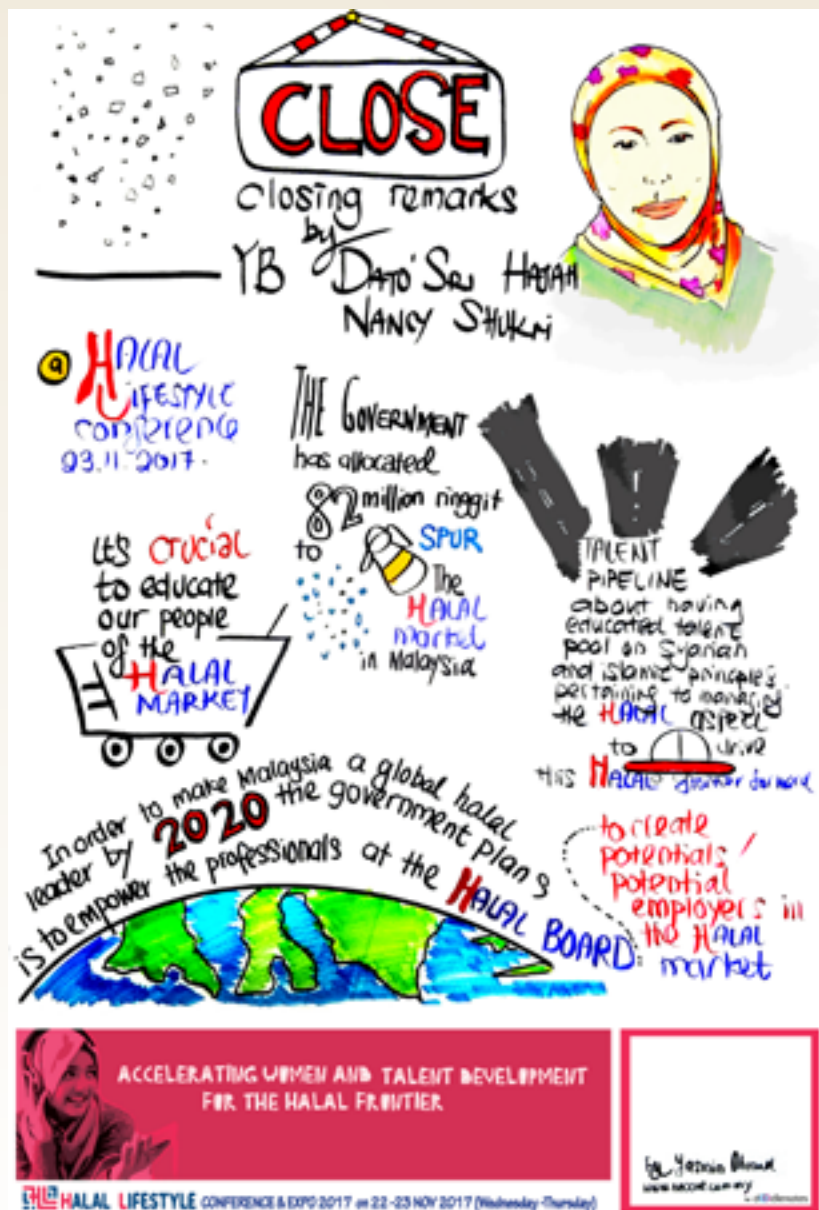 CLOSE
closing remarks
by
YB DATO' SRI HAJAH
NANCY SHUKRI
@ HALAL
LIFESTYLE
conference
23.11.2017.
THE GOVERNMENT
has allocated
82 million ringgit
to SPUR
The
HALAL
market
in Malaysia
It's crucial
to educate
our people
of the
HALAL
MARKET
TALENT
PIPELINE
about having
educated talent
pool on Syariah
and islamic principles
pertaining to managing
the HALAL aspect
to drive
this HALAL frontier forward
In order to make Malaysia a global halal
leader by 2020 the government plans
is to empower the professionals at the HALAL BOARD
to create
potentials/
potential
employers in
the HALAL
market
ACCELERATING WOMEN AND TALENT DEVELOPMENT
FOR THE HALAL FRONTIER
by Yasmin
HALAL LIFESTYLE CONFERENCE & EXPO 2017 on 22-23 NOV 2017 (Wednesday-Thursday)